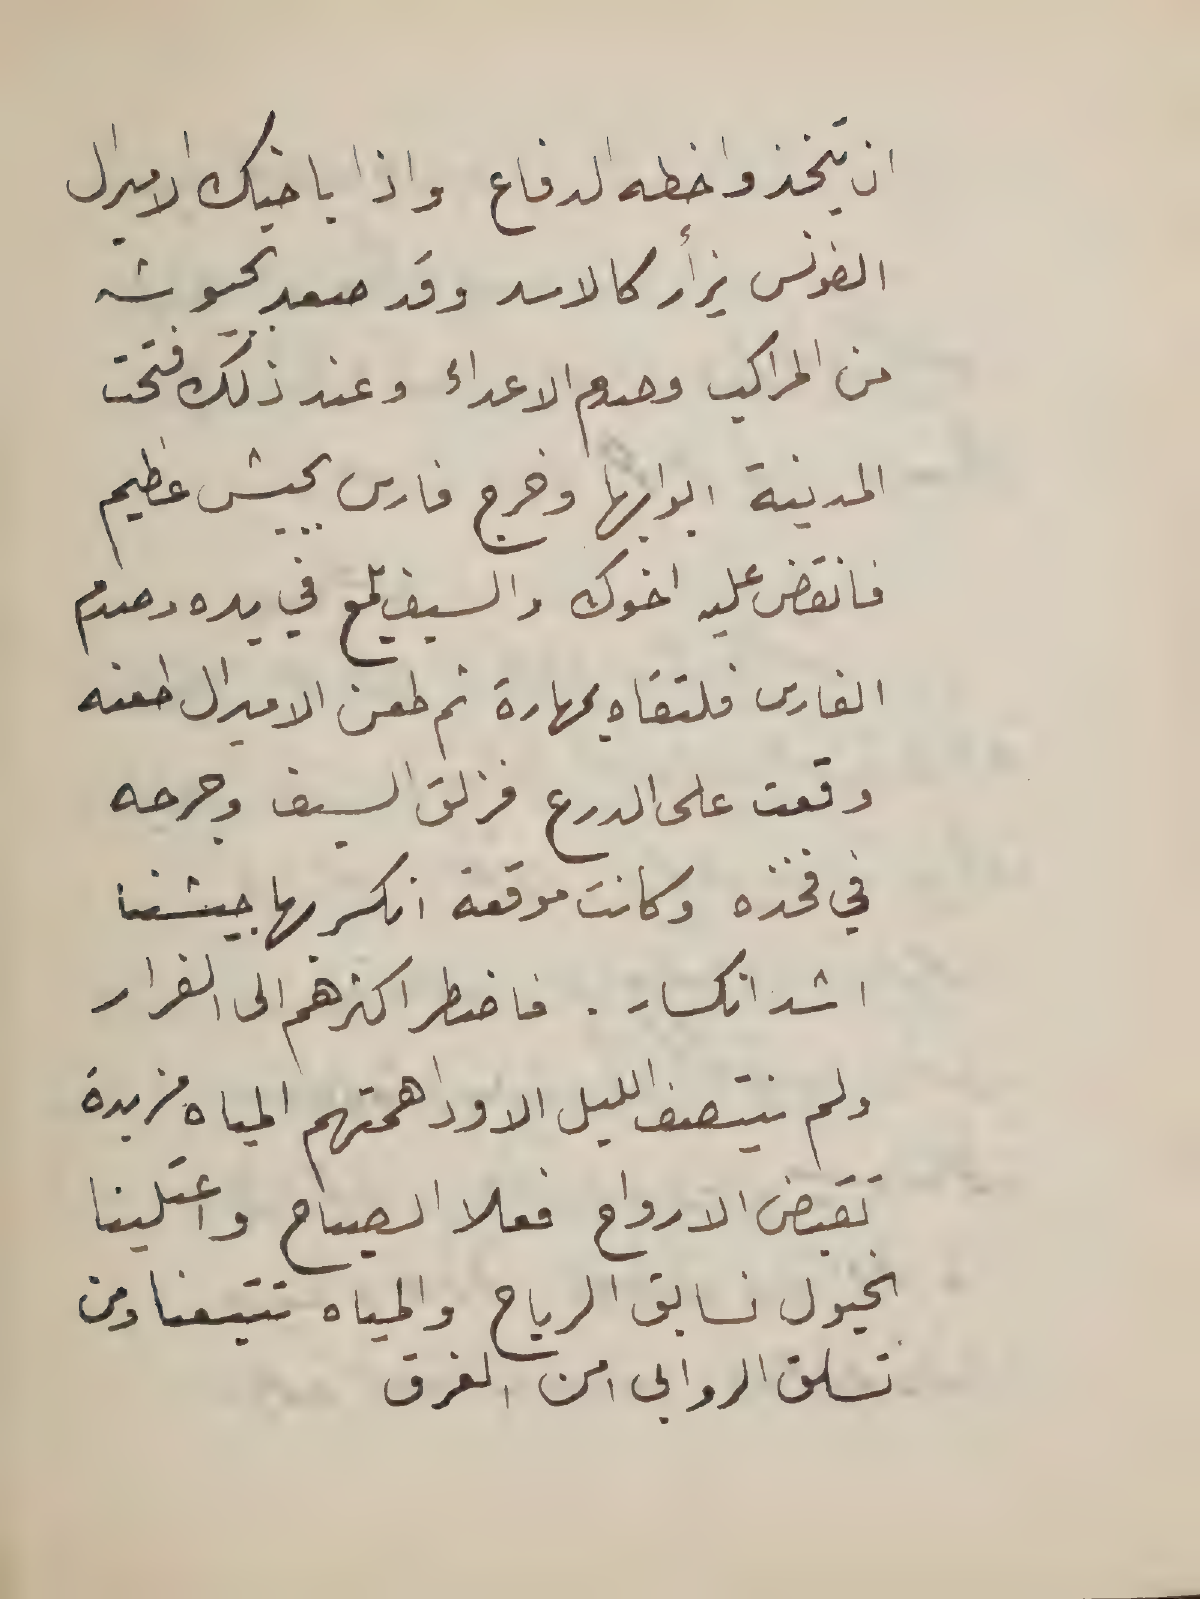 ان يتخذوا خطه الدفاع واذا باخيك الاميرال
الفونس يزأر كالاسد وقد صعد بجيوشه
من المراكب وصدم الاعداء وعند ذلك فتحت
المدينة ابوابها وخرج فارس بجيش عظيم
فانقض عليه اخوك والسيف يلمع في يده وصدم
الفارس فلتقاه بمهارة ثم طعن الاميرال طعنه
وقعت على الدرع فزلق السيف وجرحه
في فخذه وكانت موقعة انكسر بها جيشنا
اشد انكسار . فاضطر اكثرهم الى الفرار
ولم ينتصف الليل الا وداهمتهم المياه مزبدة
تقبض الارواح فعلا الصياح واعتلينا
الخيول نسابق الرياح والمياه تتبعنا ومن
تسلق الروابى امن الغرق